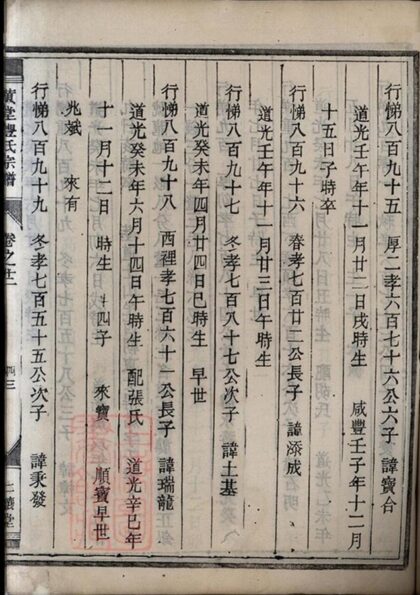 行悌八百九十五　厚二孝七百七十六公六子　諱寶台
道光壬午年十一月廿二日戌時生　咸豐壬子年十二月
十五日子時卒
行悌八百九十六　春孝七百廿二公長子　諱添成
道光壬午年十一月廿三日午時生
行悌八百九十七　冬孝七百八十七公次子　諱土基
道光癸未年四月廿四日巳時生　早世
行悌八百九十八　西裡孝七百六十一公長子　諱瑞龍
道光癸未年六月十四日午時生　配張氏　道光辛巳年
十一月十二日　時生　四子　來寶　順寶早世
兆斌　來有
行悌八百九十九　冬孝七百五十五公次子　諱秉發
堂　氏宗譜　卷之　四三　堂